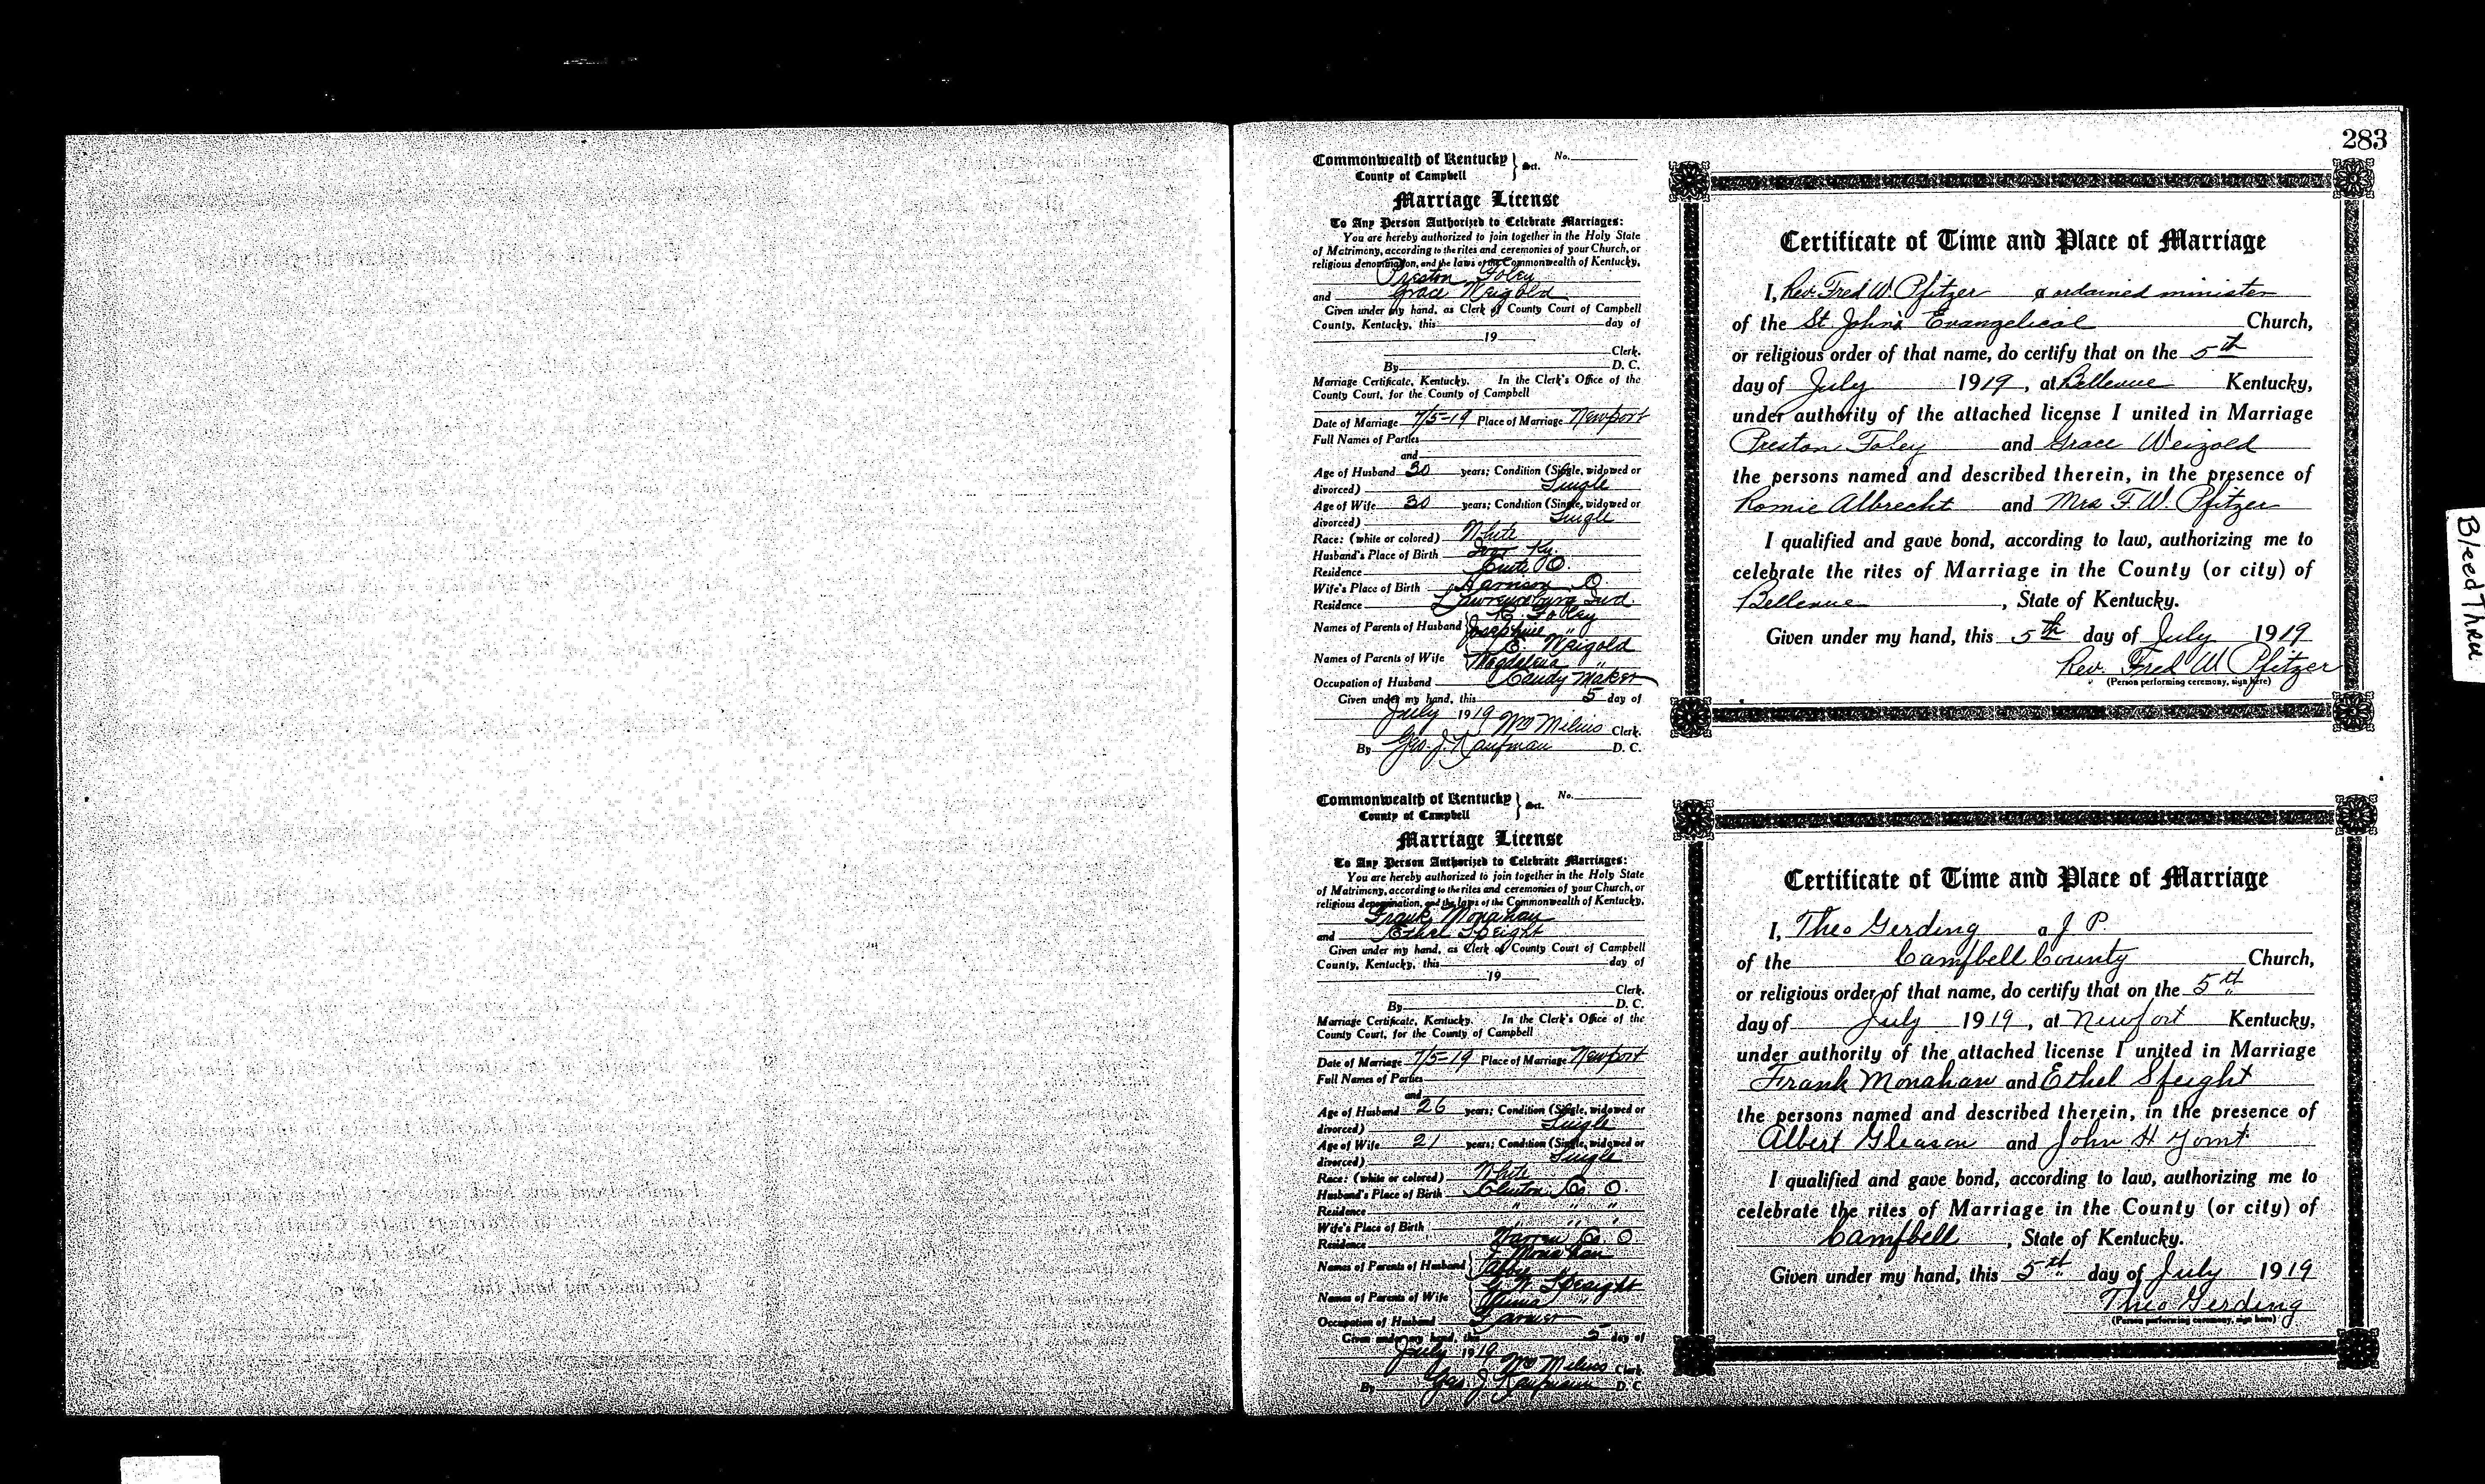 283
Commonwealth of Kentucky } Sct. No.
County of Campbell
Marriage License
To Any Person Authorized to Celebrate Marriages:
You are hereby authorized to join together in the Holy State
of Matrimony, according to the rites and ceremonies of your Church, or
religious denomination, and the laws of the Commonwealth of Kentucky,
Preston Foley
and Grace Weigold
Given under my hand, as Clerk of County Court of Campbell
County, Kentucky, this day of
19
Clerk.
By D. C.
Marriage Certificate, Kentucky. In the Clerk's Office of the
County Court, for the County of Campbell
Date of Marriage 7/5-19 Place of Marriage Newport
Full Names of Parties
and
Age of Husband 30 years; Condition (Single, widowed or
divorced) Single
Age of Wife 30 years; Condition (Single, widowed or
divorced) Single
Race: (white or colored) White
Husband's Place of Birth Ivor Ky.
Residence O.
Wife's Place of Birth Harrison O.
Residence Lawrenceburg Ind.
Names of Parents of Husband { Foley
Josephine "
Names of Parents of Wife Weigold
Magdalena "
Occupation of Husband Candy Maker
Given under my hand, this 5 day of
July 1919 Wm Milius Clerk.
By Geo. J. Kaufman D. C.
Certificate of Time and Place of Marriage
I, Rev. Fred W. Pfitzer a ordained minister
of the St. John's Evangelical Church,
or religious order of that name, do certify that on the 5th
day of July 1919, at Bellevue Kentucky,
under authority of the attached license I united in Marriage
Preston Foley and Grace Weigold
the persons named and described therein, in the presence of
Romie Albrecht and Mrs F. W. Pfitzer
I qualified and gave bond, according to law, authorizing me to
celebrate the rites of Marriage in the County (or city) of
Bellevue, State of Kentucky.
Given under my hand, this 5th day of July 1919
Rev. Fred W. Pfitzer
(Person performing ceremony, sign here)
Commonwealth of Kentucky } Sct. No.
County of Campbell
Marriage License
To Any Person Authorized to Celebrate Marriages:
You are hereby authorized to join together in the Holy State
of Matrimony, according to the rites and ceremonies of your Church, or
religious denomination, and the laws of the Commonwealth of Kentucky,
Frank Monahan
and Ethel Speight
Given under my hand, as Clerk of County Court of Campbell
County, Kentucky, this day of
19
Clerk.
By D. C.
Marriage Certificate, Kentucky. In the Clerk's Office of the
County Court, for the County of Campbell
Date of Marriage 7/5-19 Place of Marriage Newport
Full Names of Parties
and
Age of Husband 26 years; Condition (Single, widowed or
divorced) Single
Age of Wife 21 years; Condition (Single, widowed or
divorced) Single
Race: (white or colored) White
Husband's Place of Birth Clinton Co. O.
Residence " " "
Wife's Place of Birth " " "
Residence Warren Co. O.
Names of Parents of Husband { Monahan
Abby "
Names of Parents of Wife { Speaight
"
Occupation of Husband Farmer
Given under my hand, this 5 day of
July 1919
Wm Milius Clerk
By Geo. J. Kaufman D. C.
Certificate of Time and Place of Marriage
I, Theo Gerding a J. P.
of the Campbell County Church,
or religious order of that name, do certify that on the 5th
day of July 1919, at Newport Kentucky,
under authority of the attached license I united in Marriage
Frank Monahan and Ethel Speight
the persons named and described therein, in the presence of
Albert Gleason and John H
I qualified and gave bond, according to law, authorizing me to
celebrate the rites of Marriage in the County (or city) of
Campbell, State of Kentucky.
Given under my hand, this 5th day of July 1919
Theo Gerding
(Person performing ceremony, sign here)
Bleed Thru